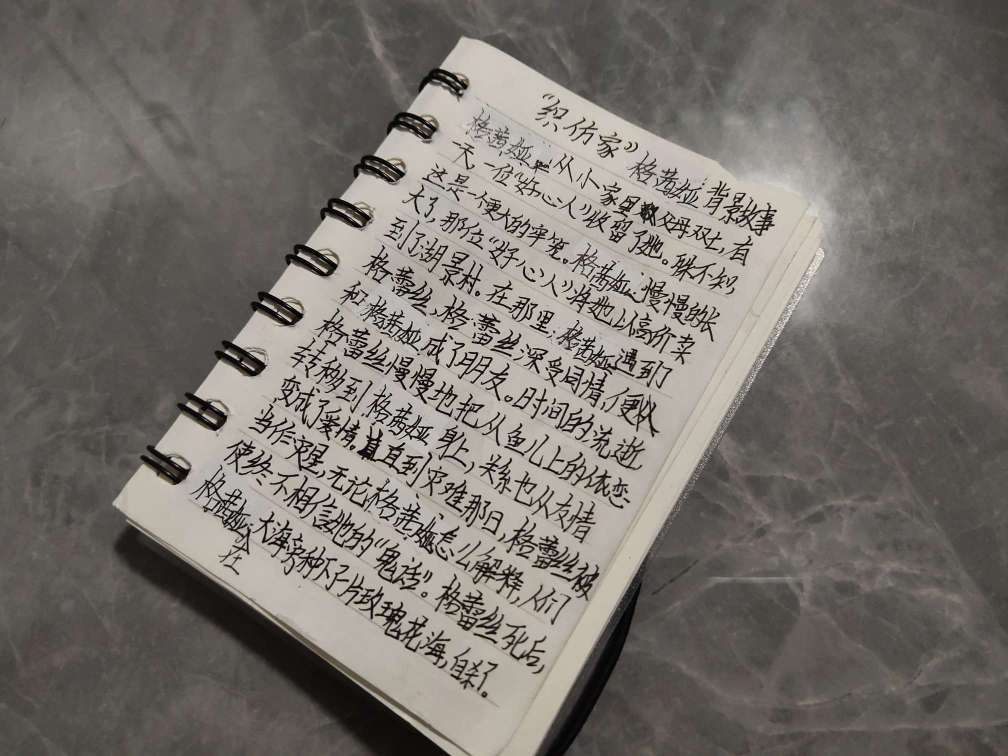 “织伤家”格茜娅背景故事
格茜娅从小家里父母双亡，有
一天，一位“好心人”收留了她。殊不知
这是一个更大的牢笼。格茜娅慢慢的长
大了，那位“好心人”将她以高价卖
到了湖景村，在那里，格茜娅遇到了
格蕾丝，格蕾丝深受同情，便
和格茜娅成了朋友。时间的流逝
格蕾丝慢慢地把从鱼儿上的依恋
转移到格茜娅身上，关系也从友情
变成了爱情。直到灾难那日，格蕾丝被
当作灾星，无论格茜娅怎么解释，人们
使终不相信她的“鬼话”。格蕾丝死后，
格茜娅在大海旁种下了片玫瑰花海，自杀了。